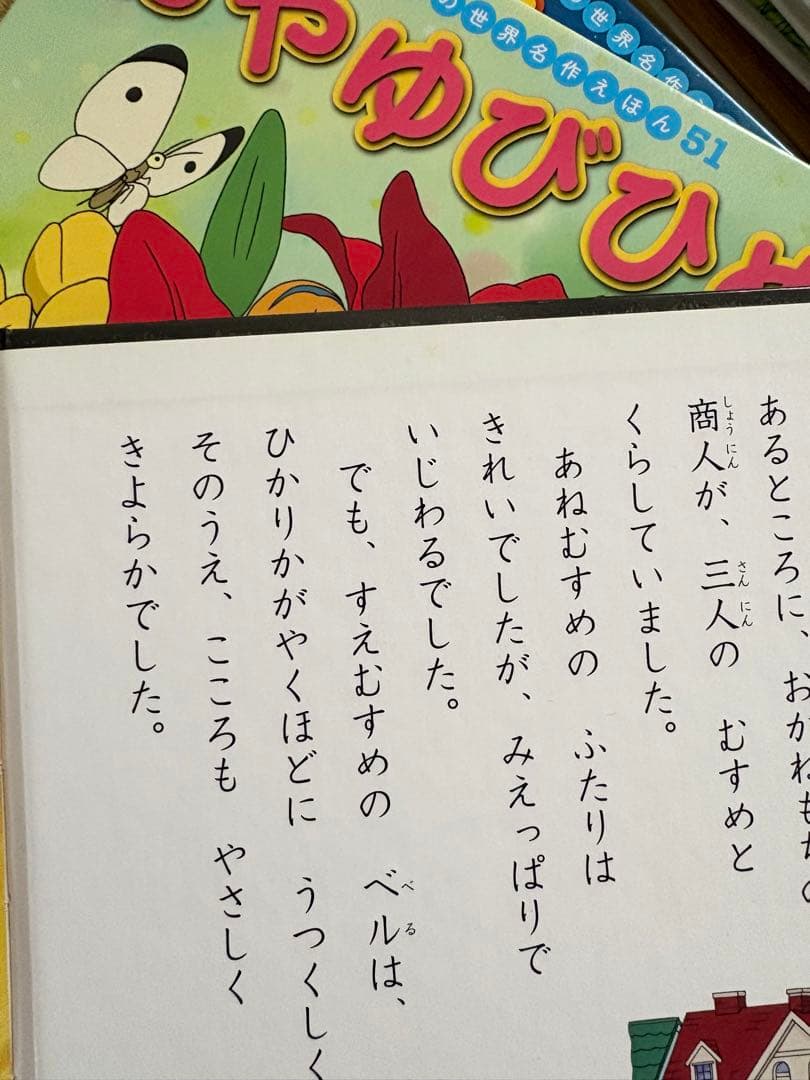 やゆびひ
の世界名作えほん51
の世界名作
あるところに、おかねもちの
商人が、三人の むすめと
くらしていました。
あねむすめの ふたりは
きれいでしたが、みえっぱりで
いじわるでした。
でも、すえむすめの ベルは、
ひかりかがやくほどに うつくしく
そのうえ、こころも やさしく
きよらかでした。